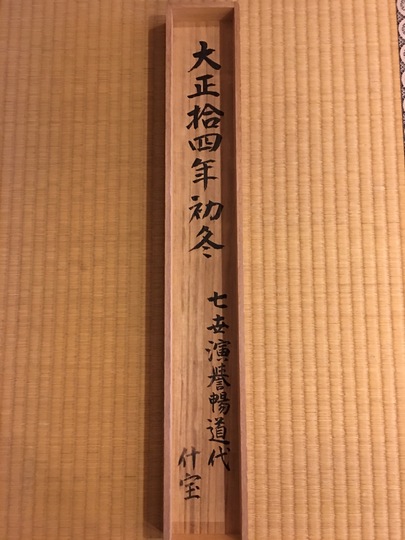 大正拾四年初冬
七世演誉暢道代
什宝